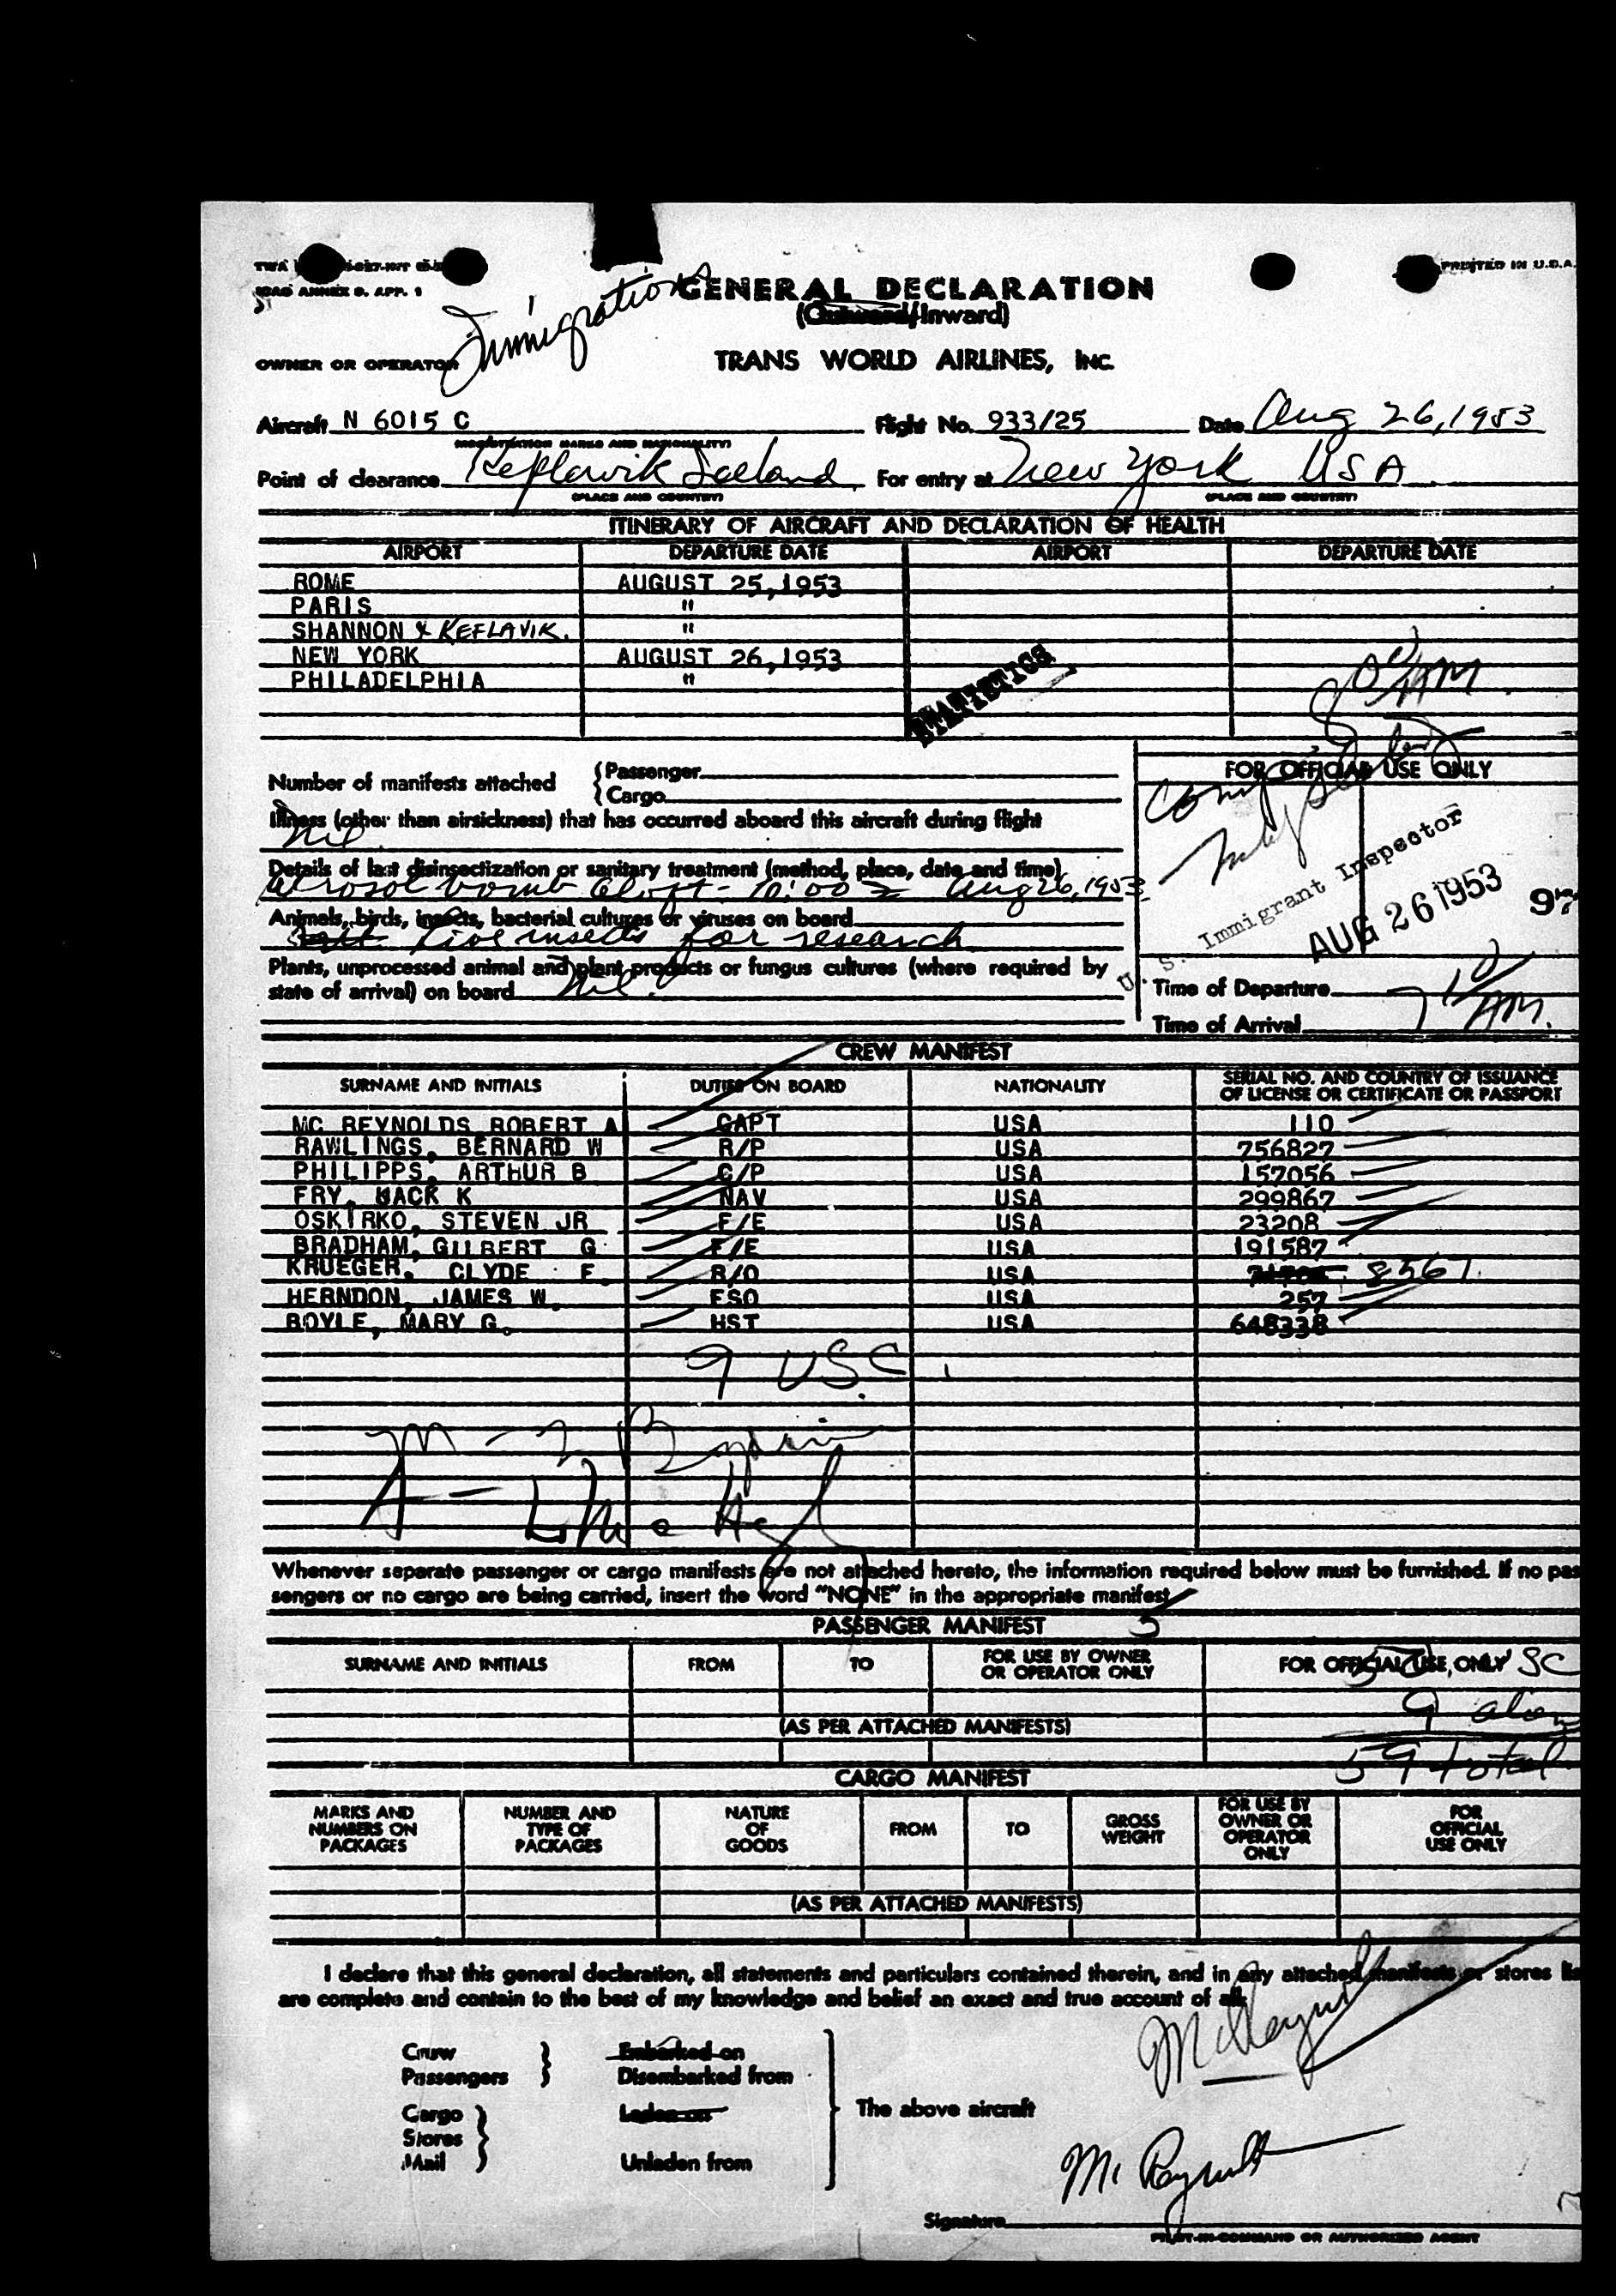 TWA
PRINTED IN U.S.A.
ICAO ANNEX 9. APP. 1
Immigration
GENERAL DECLARATION
(Outward/Inward)
OWNER OR OPERATOR TRANS WORLD AIRLINES, INC.
Aircraft N 6015 C Flight No. 933/25 Date Aug 26, 1953
(REGISTRATION MARKS AND NATIONALITY)
Point of clearance Keflavik Iceland, For entry at New York USA
(PLACE AND COUNTRY) (PLACE AND COUNTRY)
ITINERARY OF AIRCRAFT AND DECLARATION OF HEALTH
AIRPORT DEPARTURE DATE AIRPORT DEPARTURE DATE
ROME AUGUST 25,1953
PARIS "
SHANNON & KEFLAVIK. "
NEW YORK AUGUST 26,1953
PHILADELPHIA "
STATISTICS
8 00/AM
Number of manifests attached { Passenger
{ Cargo
FOR OFFICIAL USE ONLY
Illness (other than airsickness) that has occurred aboard this aircraft during flight
Nil
Details of last disinsectization or sanitary treatment (method, place, date and time)
Aerosol bomb aloft - 10:00 Z Aug 26, 1953
Animals, birds, insects, bacterial cultures or viruses on board
live insects for research
Plants, unprocessed animal and plant products or fungus cultures (where required by
state of arrival) on board Nil
U. S. Immigrant Inspector
AUG 26 1953
97
Time of Departure
7 10/AM.
Time of Arrival
CREW MANIFEST
SURNAME AND INITIALS DUTIES ON BOARD NATIONALITY SERIAL NO. AND COUNTRY OF ISSUANCE OF LICENSE OR CERTIFICATE OR PASSPORT
MC REYNOLDS ROBERT A CAPT USA 110
RAWLINGS, BERNARD W R/P USA 756827
PHILIPPS, ARTHUR B C/P USA 157056
FRY, MACK K NAV USA 299867
OSKIRKO, STEVEN JR F/E USA 23208
BRADHAM, GILBERT G F/E USA 191587
KRUEGER, CLYDE F. R/O USA 8567
HERNDON, JAMES W. FSO USA 257
BOYLE, MARY G. HST USA 648338
9 USC
Whenever separate passenger or cargo manifests are not attached hereto, the information required below must be furnished. If no pas
sengers or no cargo are being carried, insert the word "NONE" in the appropriate manifest
PASSENGER MANIFEST
SURNAME AND INITIALS FROM TO FOR USE BY OWNER OR OPERATOR ONLY FOR OFFICIAL USE ONLY
50 USC
9 alien
(AS PER ATTACHED MANIFESTS)
59 total
CARGO MANIFEST
MARKS AND NUMBERS ON PACKAGES NUMBER AND TYPE OF PACKAGES NATURE OF GOODS FROM TO GROSS WEIGHT FOR USE BY OWNER OR OPERATOR ONLY FOR OFFICIAL USE ONLY
(AS PER ATTACHED MANIFESTS)
I declare that this general declaration, all statements and particulars contained therein, and in any attached manifests or stores lis
are complete and contain to the best of my knowledge and belief an exact and true account of all
McReynolds
Crew } Embarked on
Passengers } Disembarked from
Cargo } Laden on
Stores }
Mail } Unladen from
The above aircraft
McReynolds
Signature
PILOT-IN-COMMAND OR AUTHORIZED AGENT